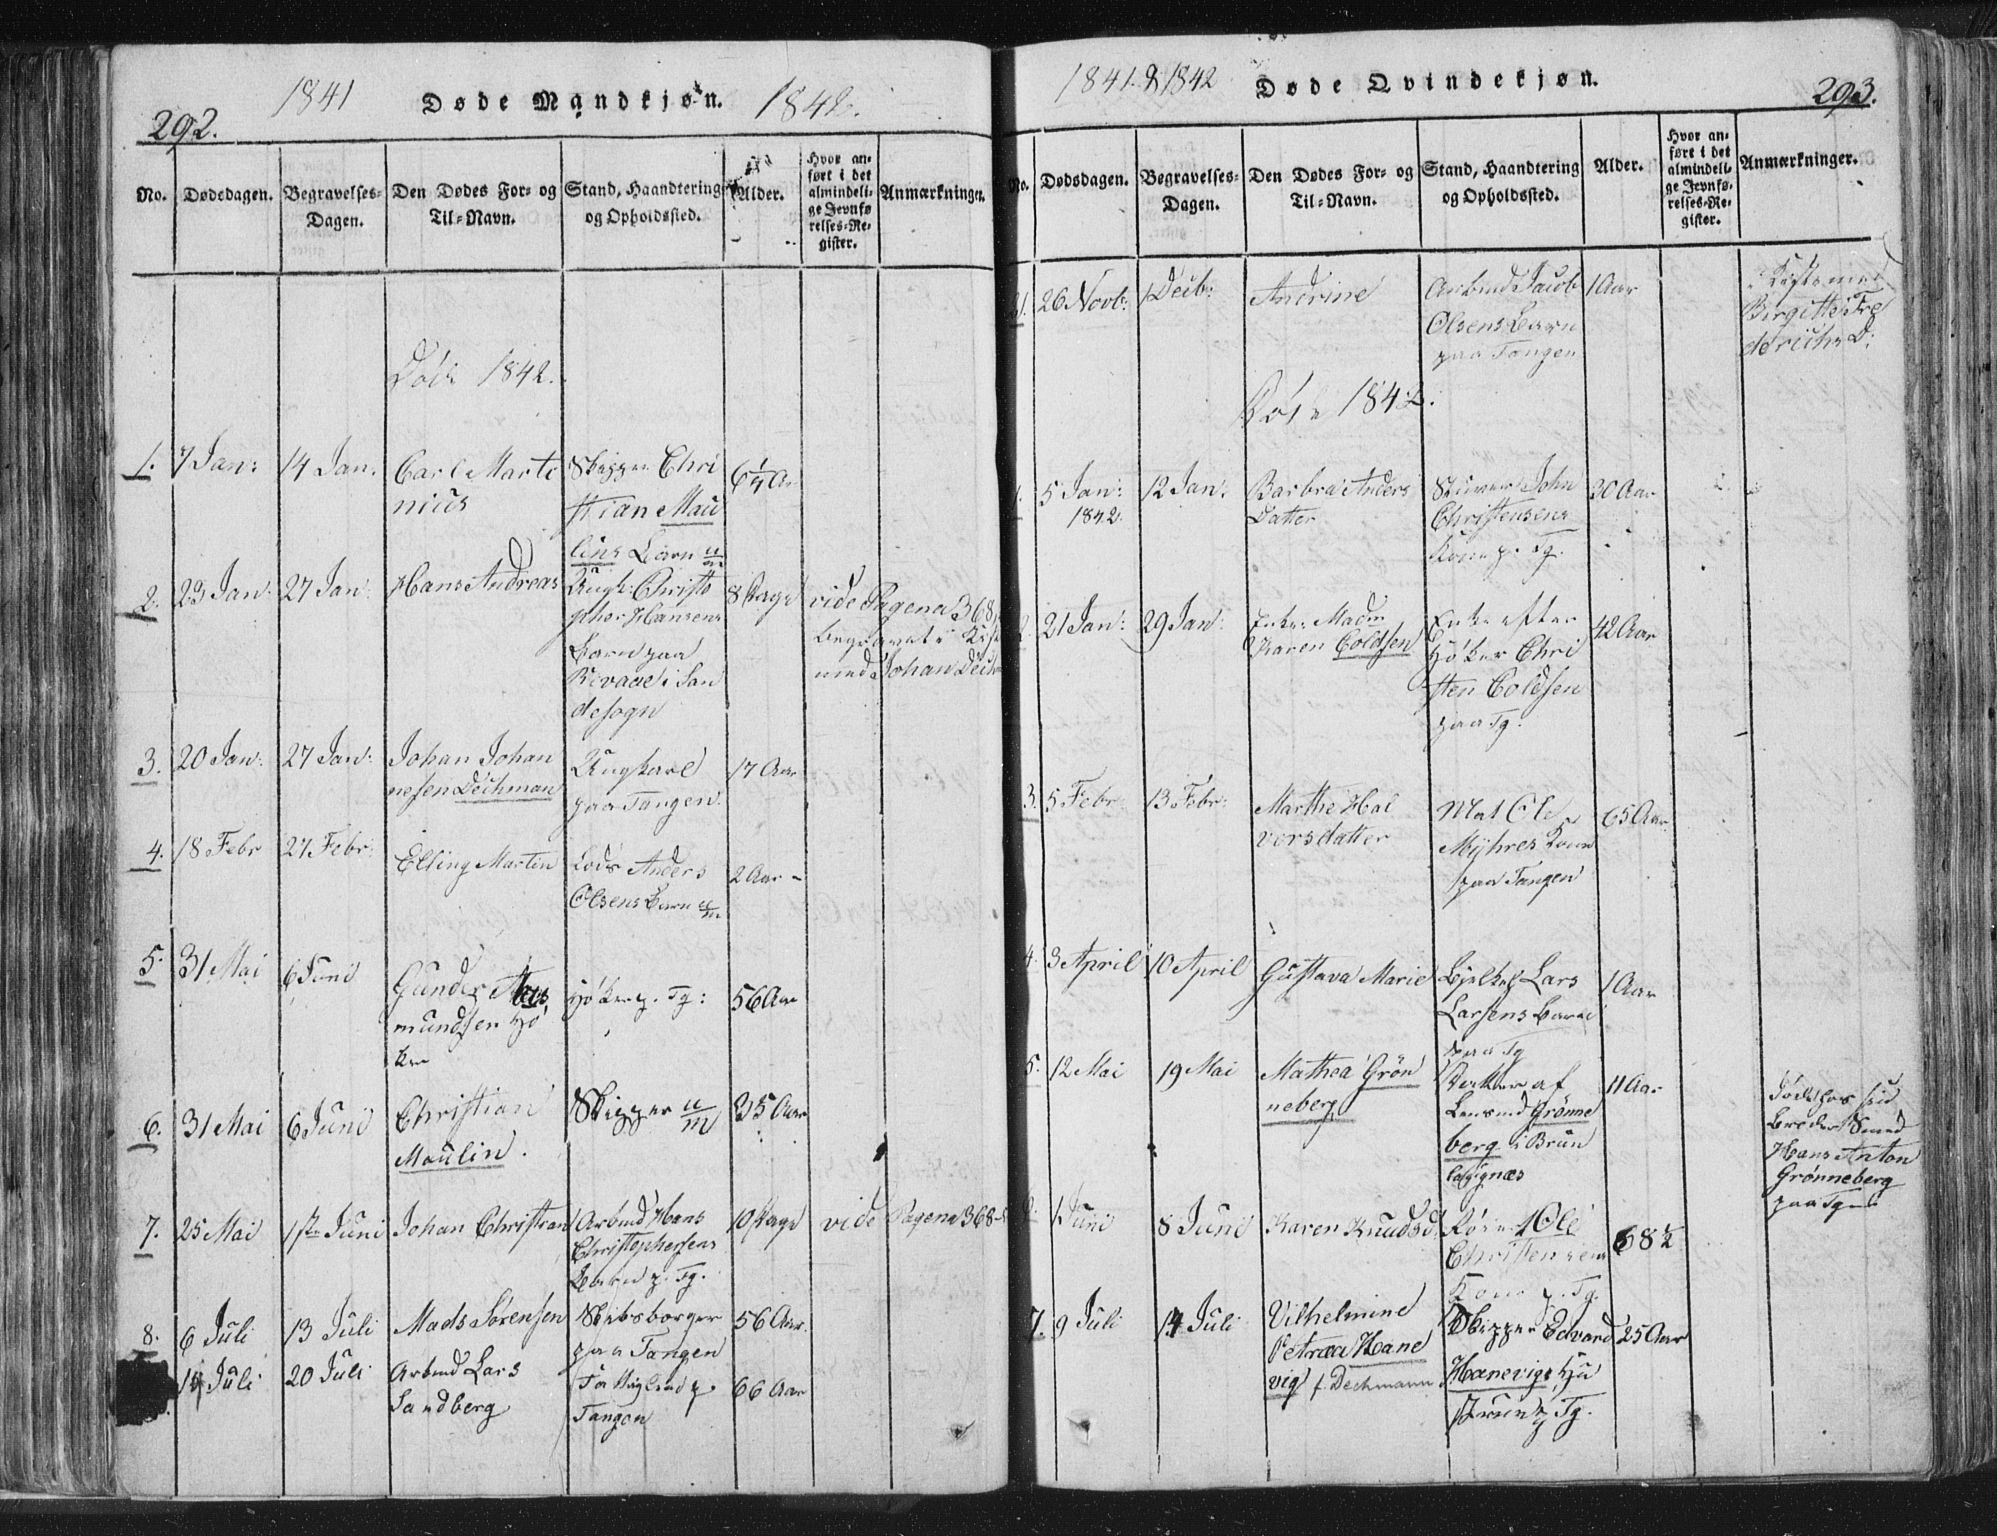 292.
1841
Døde Mandkjøn.
1842.
No.
Dødsdagen.
Begravelses-
Dagen.
Den Dødes For- og
Til-Navn.
Stand, Haandtering
og Opholdssted.
Alder.
Hvor an-
ført i det
almindeli-
ge Jevnfø
relses-Re-
gister.
Anmærkninger.
1842.
1.
7 Jan:
14 Jan.
Carl Marti
nius
Skipper Chri
stian Mau
lins Barn u/m
6 1/4 Aar
2.
23 Jan:
27 Jan:
Hans Andreas
Ungk: Christo
pher Hansens
Barn paa
i San
desogn
8 Dage
vide Pagena 368
begravet i Kist
med Johan Dech
3.
20 Jan:
27 Jan:
Johan Johan
nesen Dechman
Ungkarl
paa Tangen.
17 Aar
4.
18 Febr
27 Febr:
Elling Martin
Lods Anders
Olsens Barn u/m
2 Aar -
5.
31 Mai
6 Juni
Gunder
mundsen Hö
ker
Höker p. Tg:
56 Aar
6.
31 Mai
6 Juni
Christian
Maulin.
Skipper u/m
35 Aar
7.
25 Mai
1ste Juni
Johan Christian
Arbmd Hans
Christophersens
Barn p. Tg.
10 Dage
vide Pagena 368
8.
6 Juli
13 Juli
Mads Sörensen
Skibsborger
paa Tangen
56 Aar
14 Juli
20 Juli
Arbmd Lars
Sandberg
p.
Tangen
66 Aar
1841 & 1842
Døde Qvindekjøn.
293.
No.
Dødsdagen.
Begravelses-
Dagen.
Den Dødes For- og
Til-Navn.
Stand, Haandtering
og Opholdssted.
Alder.
Hvor an-
ført i det
almindeli-
ge Jevnfø-
relses-Re-
gister.
Anmærkninger.
21.
26 Novb:
1 Decb:
Andrine
Arbmd Jacob
Olsens Barn
paa Tangen
1 Aar
Birgitte Fre
derichs D:
1842.
1.
5 Jan:
1842.
12 Jan:
Barbra Anders
Datter
John
Christensens
Kone p. Tg.
30 Aar
2.
21 Jan:
29 Jan:
Enke Madm
Karen Coldsen
Enke efter
Höker Chri
sten Coldsen
paa Tg.
42 Aar
3.
5 Febr:
13 Febr:
Marthe Hal
vorsdatter
Mat Ole
Myhres Kone
paa Tangen
65 Aar
4.
3 April
10 April
Gustava Marie
Lars
Larsens Barn
paa Tg
1 Aar
5.
12 Mai
19 Mai
Mathea Grön
neberg
Datter af
Grönne
berg i Brun
lagnæs
11 Aar
Död hos sin
Broder Smed
Hans Anton
Grönneberg
paa Tgen
6.
1 Juni
8 Juni
Karen Knudsd
Ole
Christensens
Kone p. Tg.
68 1/2
7.
9 Juli
14 Juli
Vilhelmine
Petræa Hane
vig f. Dechmann
Skipper Edvard
Hanevigs Hu
struen p Tg.
25 Aar